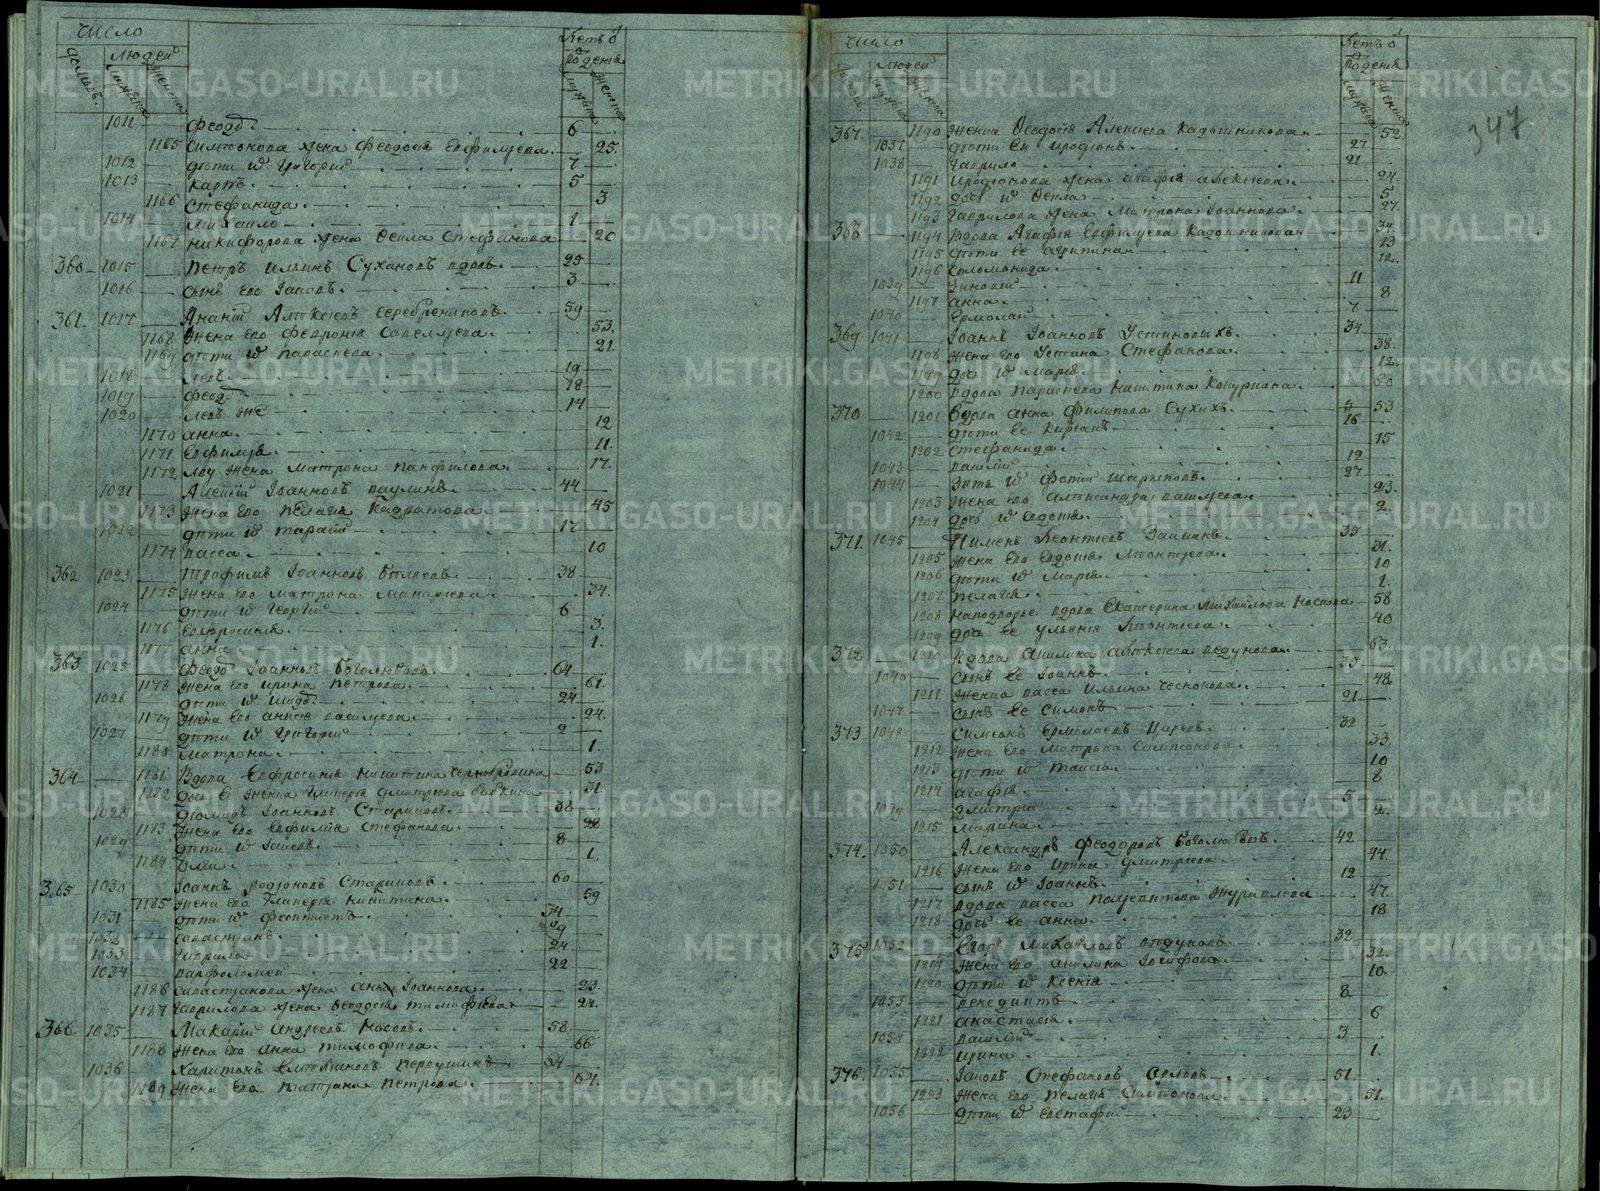 число
людей
домовъ.
мужеска
женска
Летъ от
рождения
мужеска
женска
1011 Феодоръ 6
1165 Симеонова жена Феодосия Евфимиева 25.
1012 дети их Григорий 7
1013 Карпъ 5
1166 Стефанида 3
1014 Михаило 1
1167 Никифорова жена Фекла Стефанова 20
360 1015 Петръ Ильинъ Сухановъ вдовъ 25
1016 сынъ его Иаковъ 3
361. 1017 Ананий Алексеевъ Серебрениковъ 59
1168 Жена его Феврония Савельева 53.
1169 дети их Параскева 21.
1018 Левъ 19
1019 Феодоръ 18
1020 Левъ же 14
1170 Анна 12
1171 Евфимия 11.
1172 Льву жена Матрона Панфилова 17.
1021 Алексий Иоанновъ 44
1173 Жена его Пелагия Кодратова 45
1022 дети их Тарасий 17
1174 Васса 10
362 1023 Трофимъ Иоанновъ Беляевъ 38
1175 Жена его Матрона Макариева 34.
1024 дети их Георгий 6
1176 Евфросиния 3.
1177 Анна 1.
363 1025 Феодоръ Иоанновъ Боголюбовъ 64
1178 Жена его Ирина Петрова 61.
1026 дети их 24
1179 Жена его Анисия Васильева 24.
1027 дети их Григорий 2
1180 Матрона 1.
364 1181 Вдова Евфросиния Никитина Чернобровина 53
1182 дочь ее женка Гликерия Димитриева Бабкина 31
1028 Диомидъ Иоанновъ Стариковъ 38
1183 Жена его Евфимия Стефанова 28
1029 дети их Иаковъ 8
1184 1.
365 1030 Иоаннъ Родионовъ Стариковъ 60
1185 Жена его Гликерия Никитина 59
1031 дети их Феоктистъ 34
1032 Савастианъ 29
1033 Гаврило 24
1034 Варфоломей 22
1186 Савастианова жена Анна Иоаннова 23.
1187 Гаврилова жена Феодосия Тимофеева 24.
366 1035 Макарий Андреевъ Носовъ 58
1188 Жена его Анна Тимофеева 66
1036 Харитонъ Первушинъ 64
1189 Жена его Татиана Петрова 64.
347
число
людей
мужеска
женска
Летъ от
рождения
мужеска
женска
367. 1190 Женка Феодосия Алексеева Кадошникова 52.
1037 дети ея Иродионъ 27
1038 Гаврило 21
1191 Иродионова жена Агафия Алексеева 24.
1192 дочь их Фекла 5
1193 Гаврилова жена Матрона Иоаннова 27.
368 1194 Вдова Агафия Евфимиева Кадошникова 34.
1195 дети ее Агрипина 13
1196 Соломонида 12.
1039 Зиновий 11
1197 Анна 8
1040 Ермолай 7
369 1041 Иоаннъ Иоанновъ Устиновыхъ 34
1198 Жена его Устина Стефанова 38.
1199 дочь их Мария 12.
1200 Вдова Параскева Никитина 60
370 1201 Вдова Анна Филипова Сухихъ 53
1042 дети ее Кирилъ 16
1202 Стефанида 15
1043 Василий 12
1044 Зять их Фотий Шарыповъ 27
1203 Жена его Александра Васильева 23.
1204 дочь их Евдокия 2.
371. 1045 Пименъ Леонтиевъ Заикинъ 35
1205 Жена его Евдокия Леонтиева 31.
1206 дети их Мария 10
1207 Пелагия 1.
1208 Наподворье вдова Екатерина Михайлова Носкова 58
1209 дочь ее Ульяния Леонтиева 40
372 1210 Вдова Акилина Алексеева 63.
1046 Сынъ ее Иоаннъ 39
1211 Женка Васса Ильина Чеснокова 48.
1047 сынъ ее Симонъ 21
373 1048 Симеонъ Ермолаевъ Царевъ 32
1212 Жена его Матрона Сампсонова 33.
1213 дети их Таисия 10
1214 Агафия 8
1049 Димитрий 5
1215 Марина 2.
374. 1050 Александръ Феодоровъ Боголюбовъ 42
1216 Жена его Ирина Димитриева 44.
1051 сынъ их Иоаннъ 12
1217 Вдова Васса Полуектова Журавлева 47.
1218 дочь ее Анна 18
375 1052 Егоръ Михайловъ 32
1219 Жена его Акилина Иосифова 32.
1220 дети их Ксения 10.
1053 Венедиктъ 8
1221 Анастасия 6
1054 Василий 3
1222 Ирина 1.
376. 1055 Иаковъ Стефановъ Орловъ 51
1223 Жена его Пелагия Симеонова 51.
1056 дети их Евстафий 23